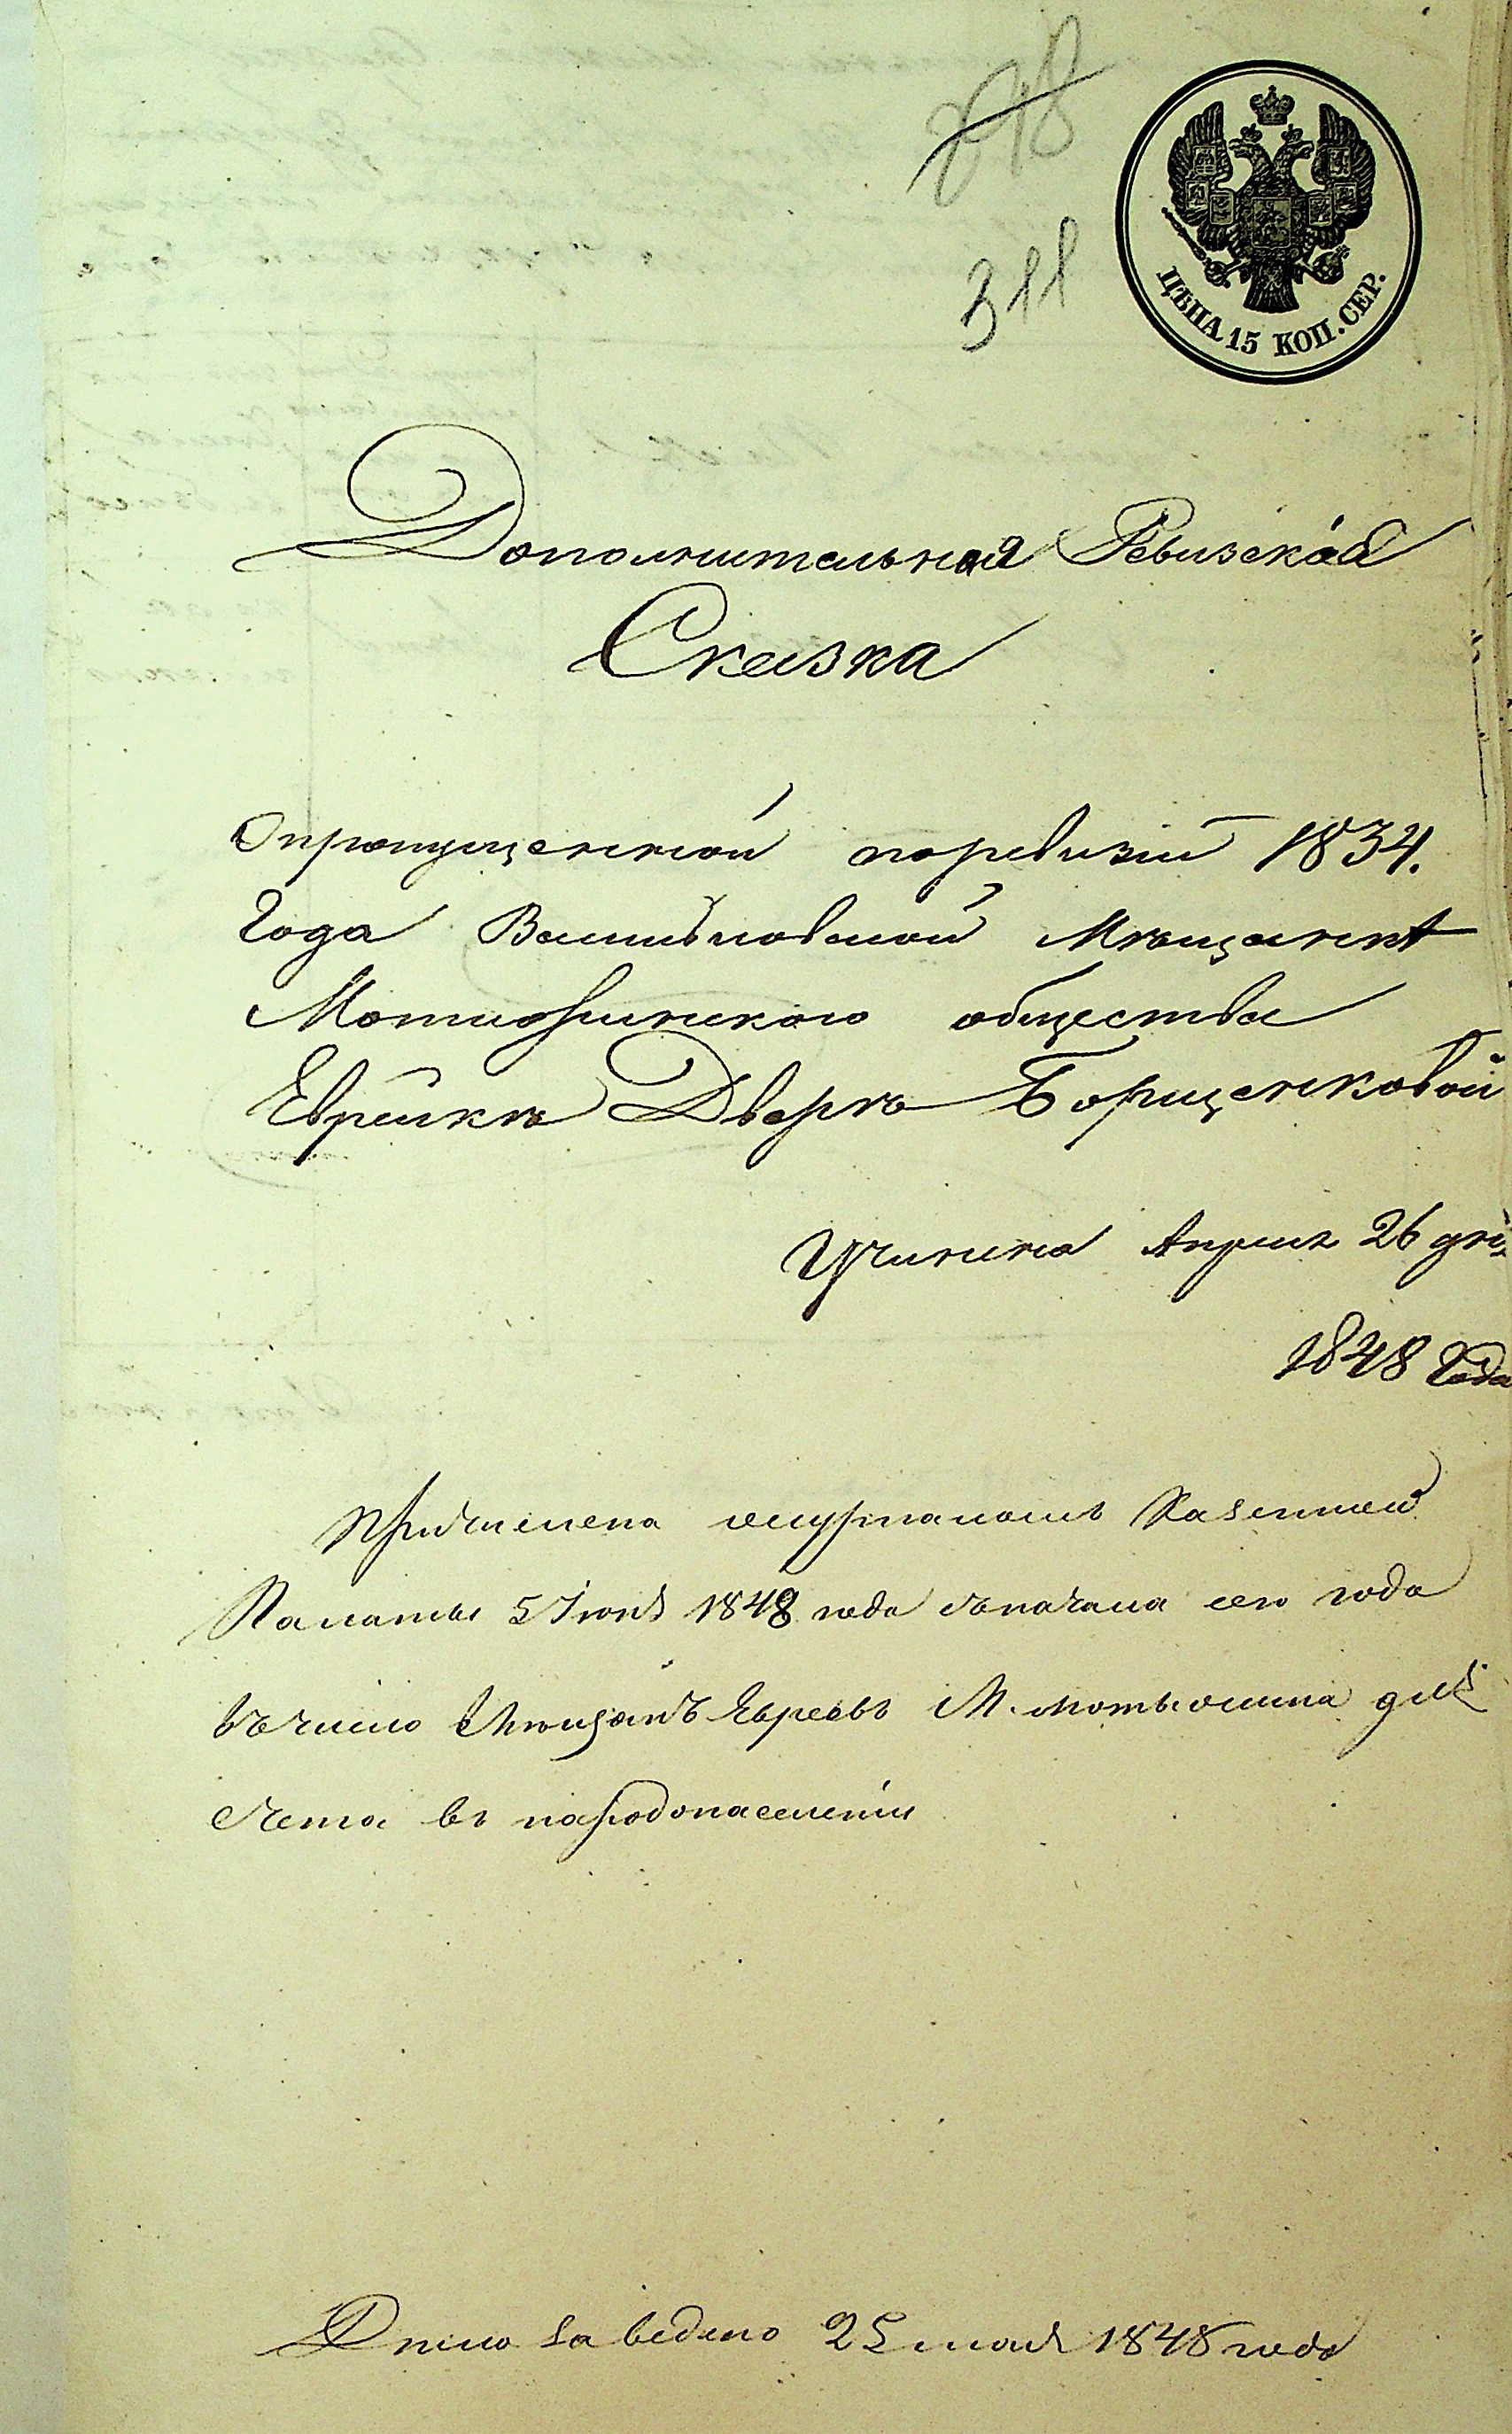 298
311
ЦѢНА 15 КОП. СЕР.
Дополнительная Ревизская
Сказка
Опропущенной поревизіи 1834.
Года Васильковской Мѣщанкѣ
Мотыжинскаго общества
Еврейкѣ Дверѣ Борщенковой
Учинена Апреля 26 дня
1848 Года
Причислена Казенной
Палаты 5 Іюня 1848 года съначала сего года
въчисло Мѣщанъ Евреевъ М. Мотыжина для
счета въ народонаселеніи
Дѣло заведено 25 мая 1848 года